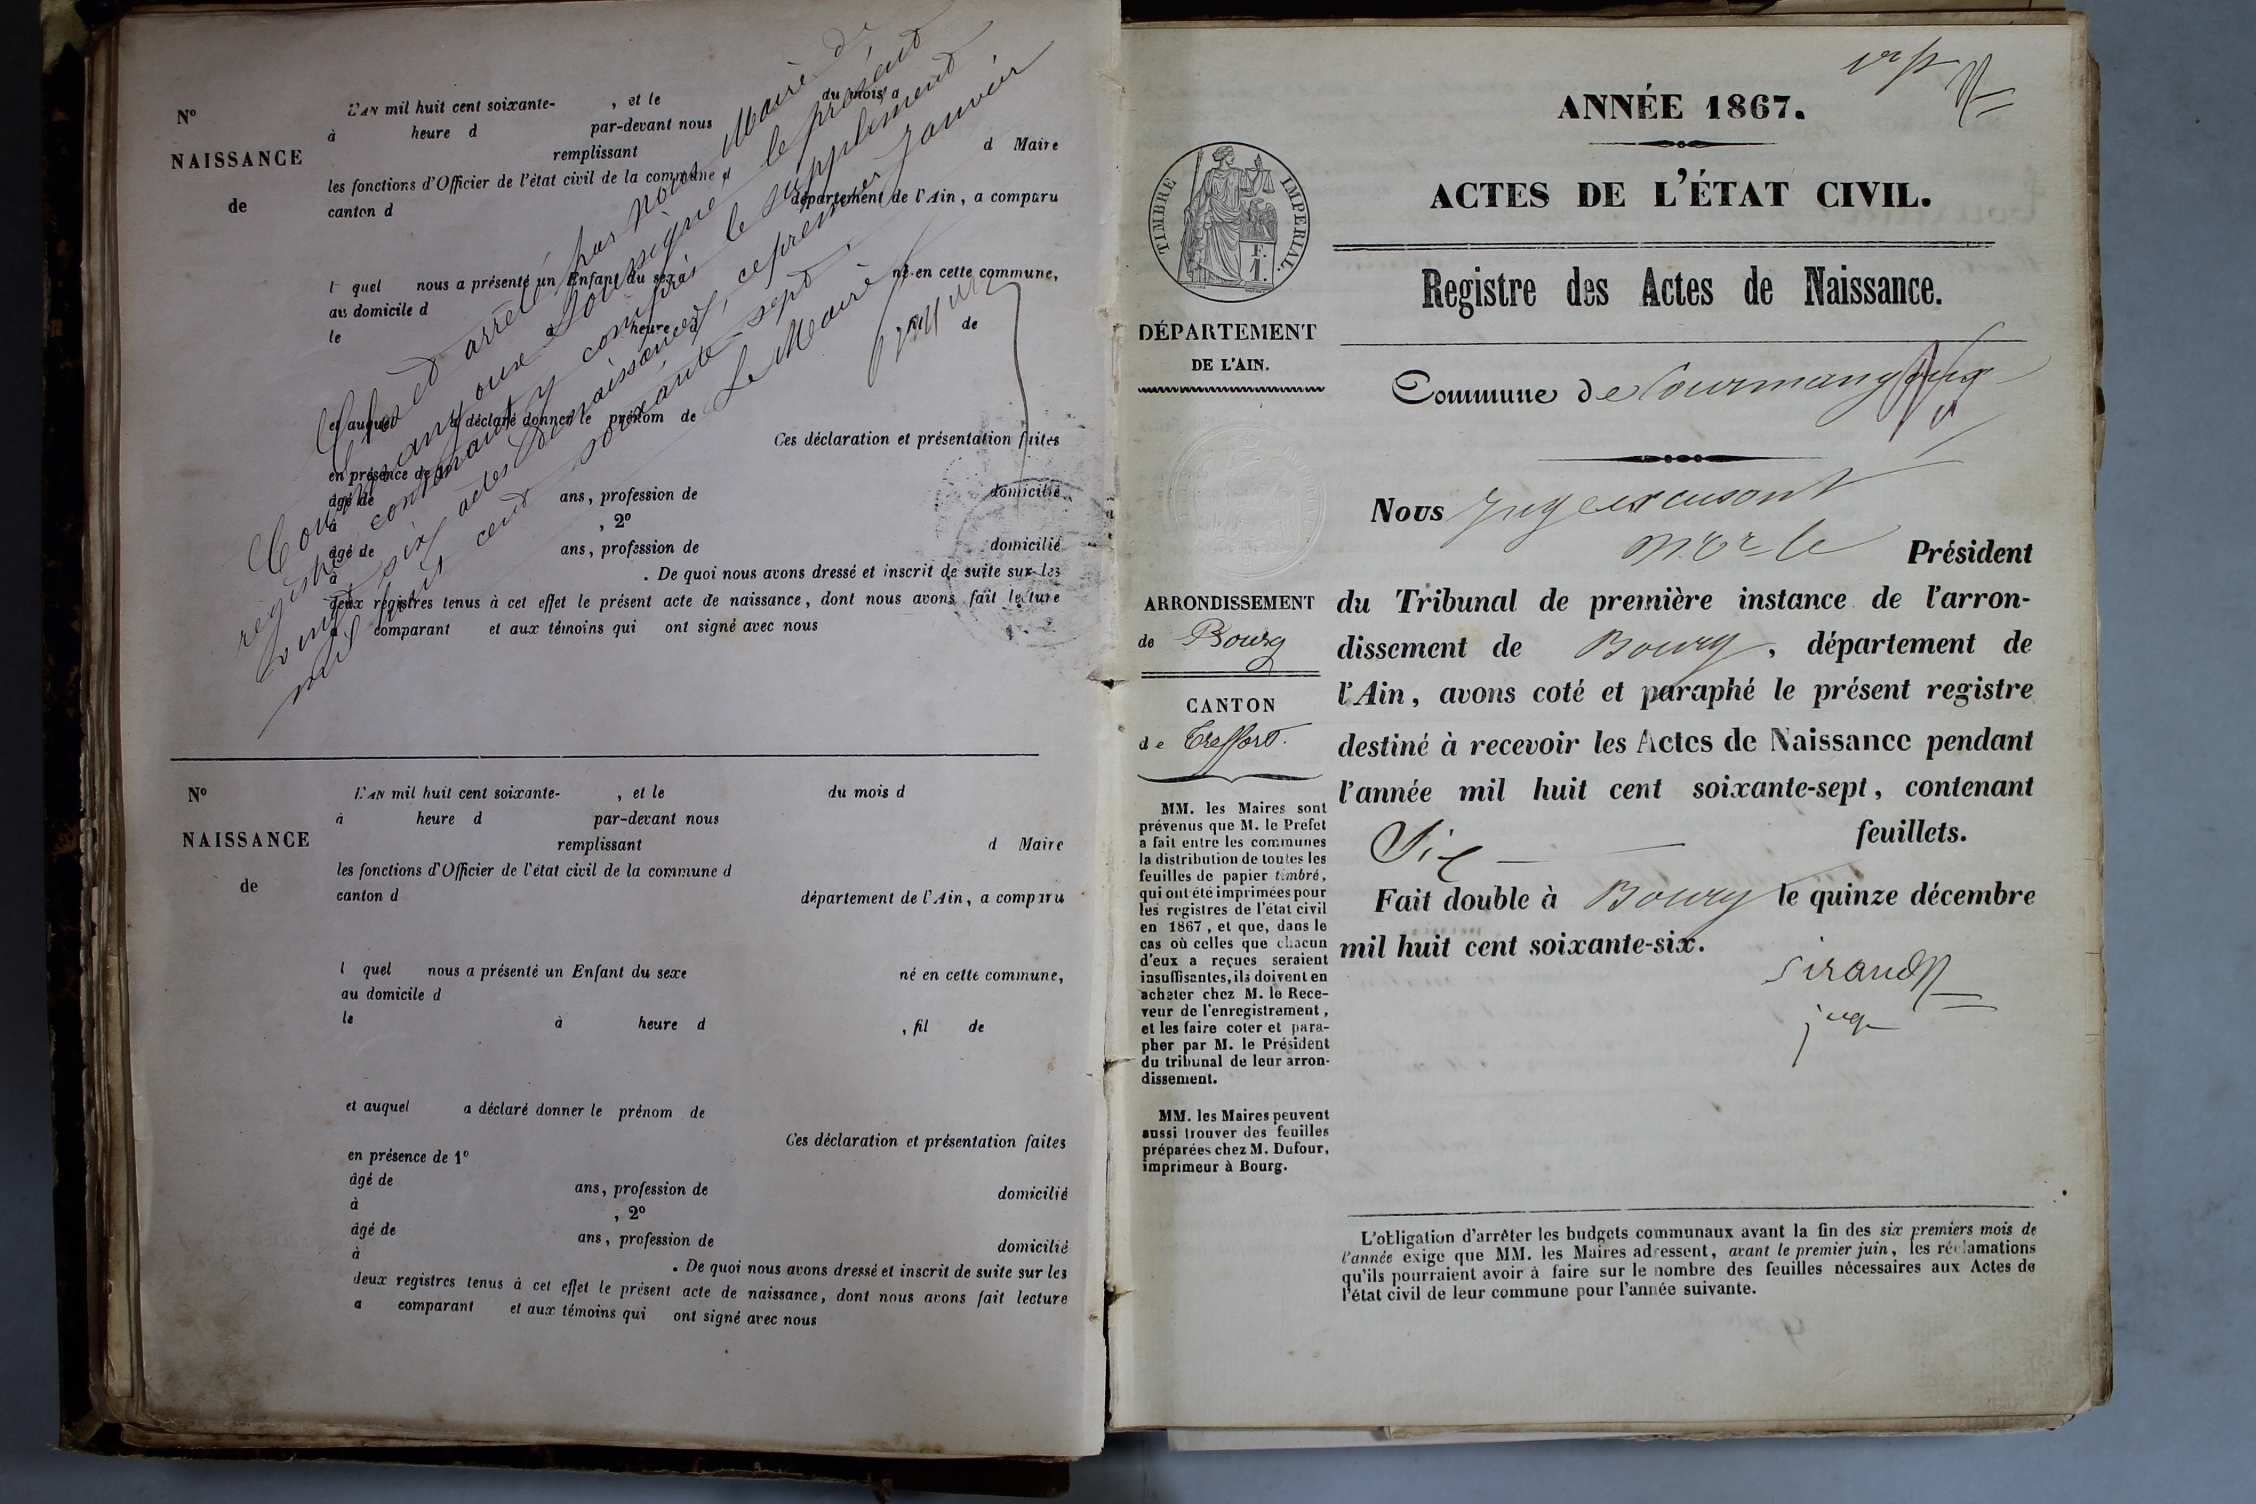 Clos et arrêté par nous Maire de
Courmangoux soussigné, le présent
registre contenant y compris le supplément
vingt six actes de naissances, ce premier Janvier
mil huit cent soixante-sept.
Le Maire
Nº
NAISSANCE
de
L'AN mil huit cent soixante- , et le du mois d
à heure d par-devant nous
remplissant d Maire
les fonctions d'Officier de l'état civil de la commune d
canton d département de l'Ain, a comparu
l quel nous a présenté un Enfant du sexe né en cette commune,
au domicile d
le à heure d fil de
et auquel a déclaré donner le prénom de
Ces déclaration et présentation faites
en présence de 1º
âgé de ans, profession de domicilié
à , 2º
âgé de ans, profession de domicilié
à . De quoi nous avons dressé et inscrit de suite sur les
deux registres tenus à cet effet le présent acte de naissance, dont nous avons fait lecture
a comparant et aux témoins qui ont signé avec nous
Nº
NAISSANCE
de
L'AN mil huit cent soixante- , et le du mois d
à heure d par-devant nous
remplissant d Maire
les fonctions d'Officier de l'état civil de la commune d
canton d département de l'Ain, a comparu
l quel nous a présenté un Enfant du sexe né en cette commune,
au domicile d
le à heure d , fil de
et auquel a déclaré donner le prénom de
Ces déclaration et présentation faites
en présence de 1º
âgé de ans, profession de domicilié
à , 2º
âgé de ans, profession de domicilié
à . De quoi nous avons dressé et inscrit de suite sur les
deux registres tenus à cet effet le présent acte de naissance, dont nous avons fait lecture
a comparant et aux témoins qui ont signé avec nous
TIMBRE IMPERIAL.
F.
1.
DÉPARTEMENT
DE L'AIN.
ARRONDISSEMENT
de Bourg
CANTON
de Treffort.
MM. les Maires sont
prévenus que M. le Préfet
a fait entre les communes
la distribution de toutes les
feuilles de papier timbré,
qui ont été imprimées pour
les registres de l'état civil
en 1867, et que, dans le
cas où celles que chacun
d'eux a reçues seraient
insuffisantes, ils doivent en
acheter chez M. le Rece-
veur de l'enregistrement,
et les faire coter et para-
pher par M. le Président
du tribunal de leur arron-
dissement.
MM. les Maires peuvent
aussi trouver des feuilles
préparées chez M. Dufour,
imprimeur à Bourg.
ANNÉE 1867.
ACTES DE L'ÉTAT CIVIL.
Registre des Actes de Naissance.
Commune de Courmangoux
Nous Juge excusant
Mr le Président
du Tribunal de première instance de l'arron-
dissement de Bourg, département de
l'Ain, avons coté et paraphé le présent registre
destiné à recevoir les Actes de Naissance pendant
l'année mil huit cent soixante-sept, contenant
Six feuillets.
Fait double à Bourg le quinze décembre
mil huit cent soixante-six.
Sirand
juge
L'obligation d'arrêter les budgets communaux avant la fin des six premiers mois de
l'année exige que MM. les Maires adressent, avant le premier juin, les réclamations
qu'ils pourraient avoir à faire sur le nombre des feuilles nécessaires aux Actes de
l'état civil de leur commune pour l'année suivante.